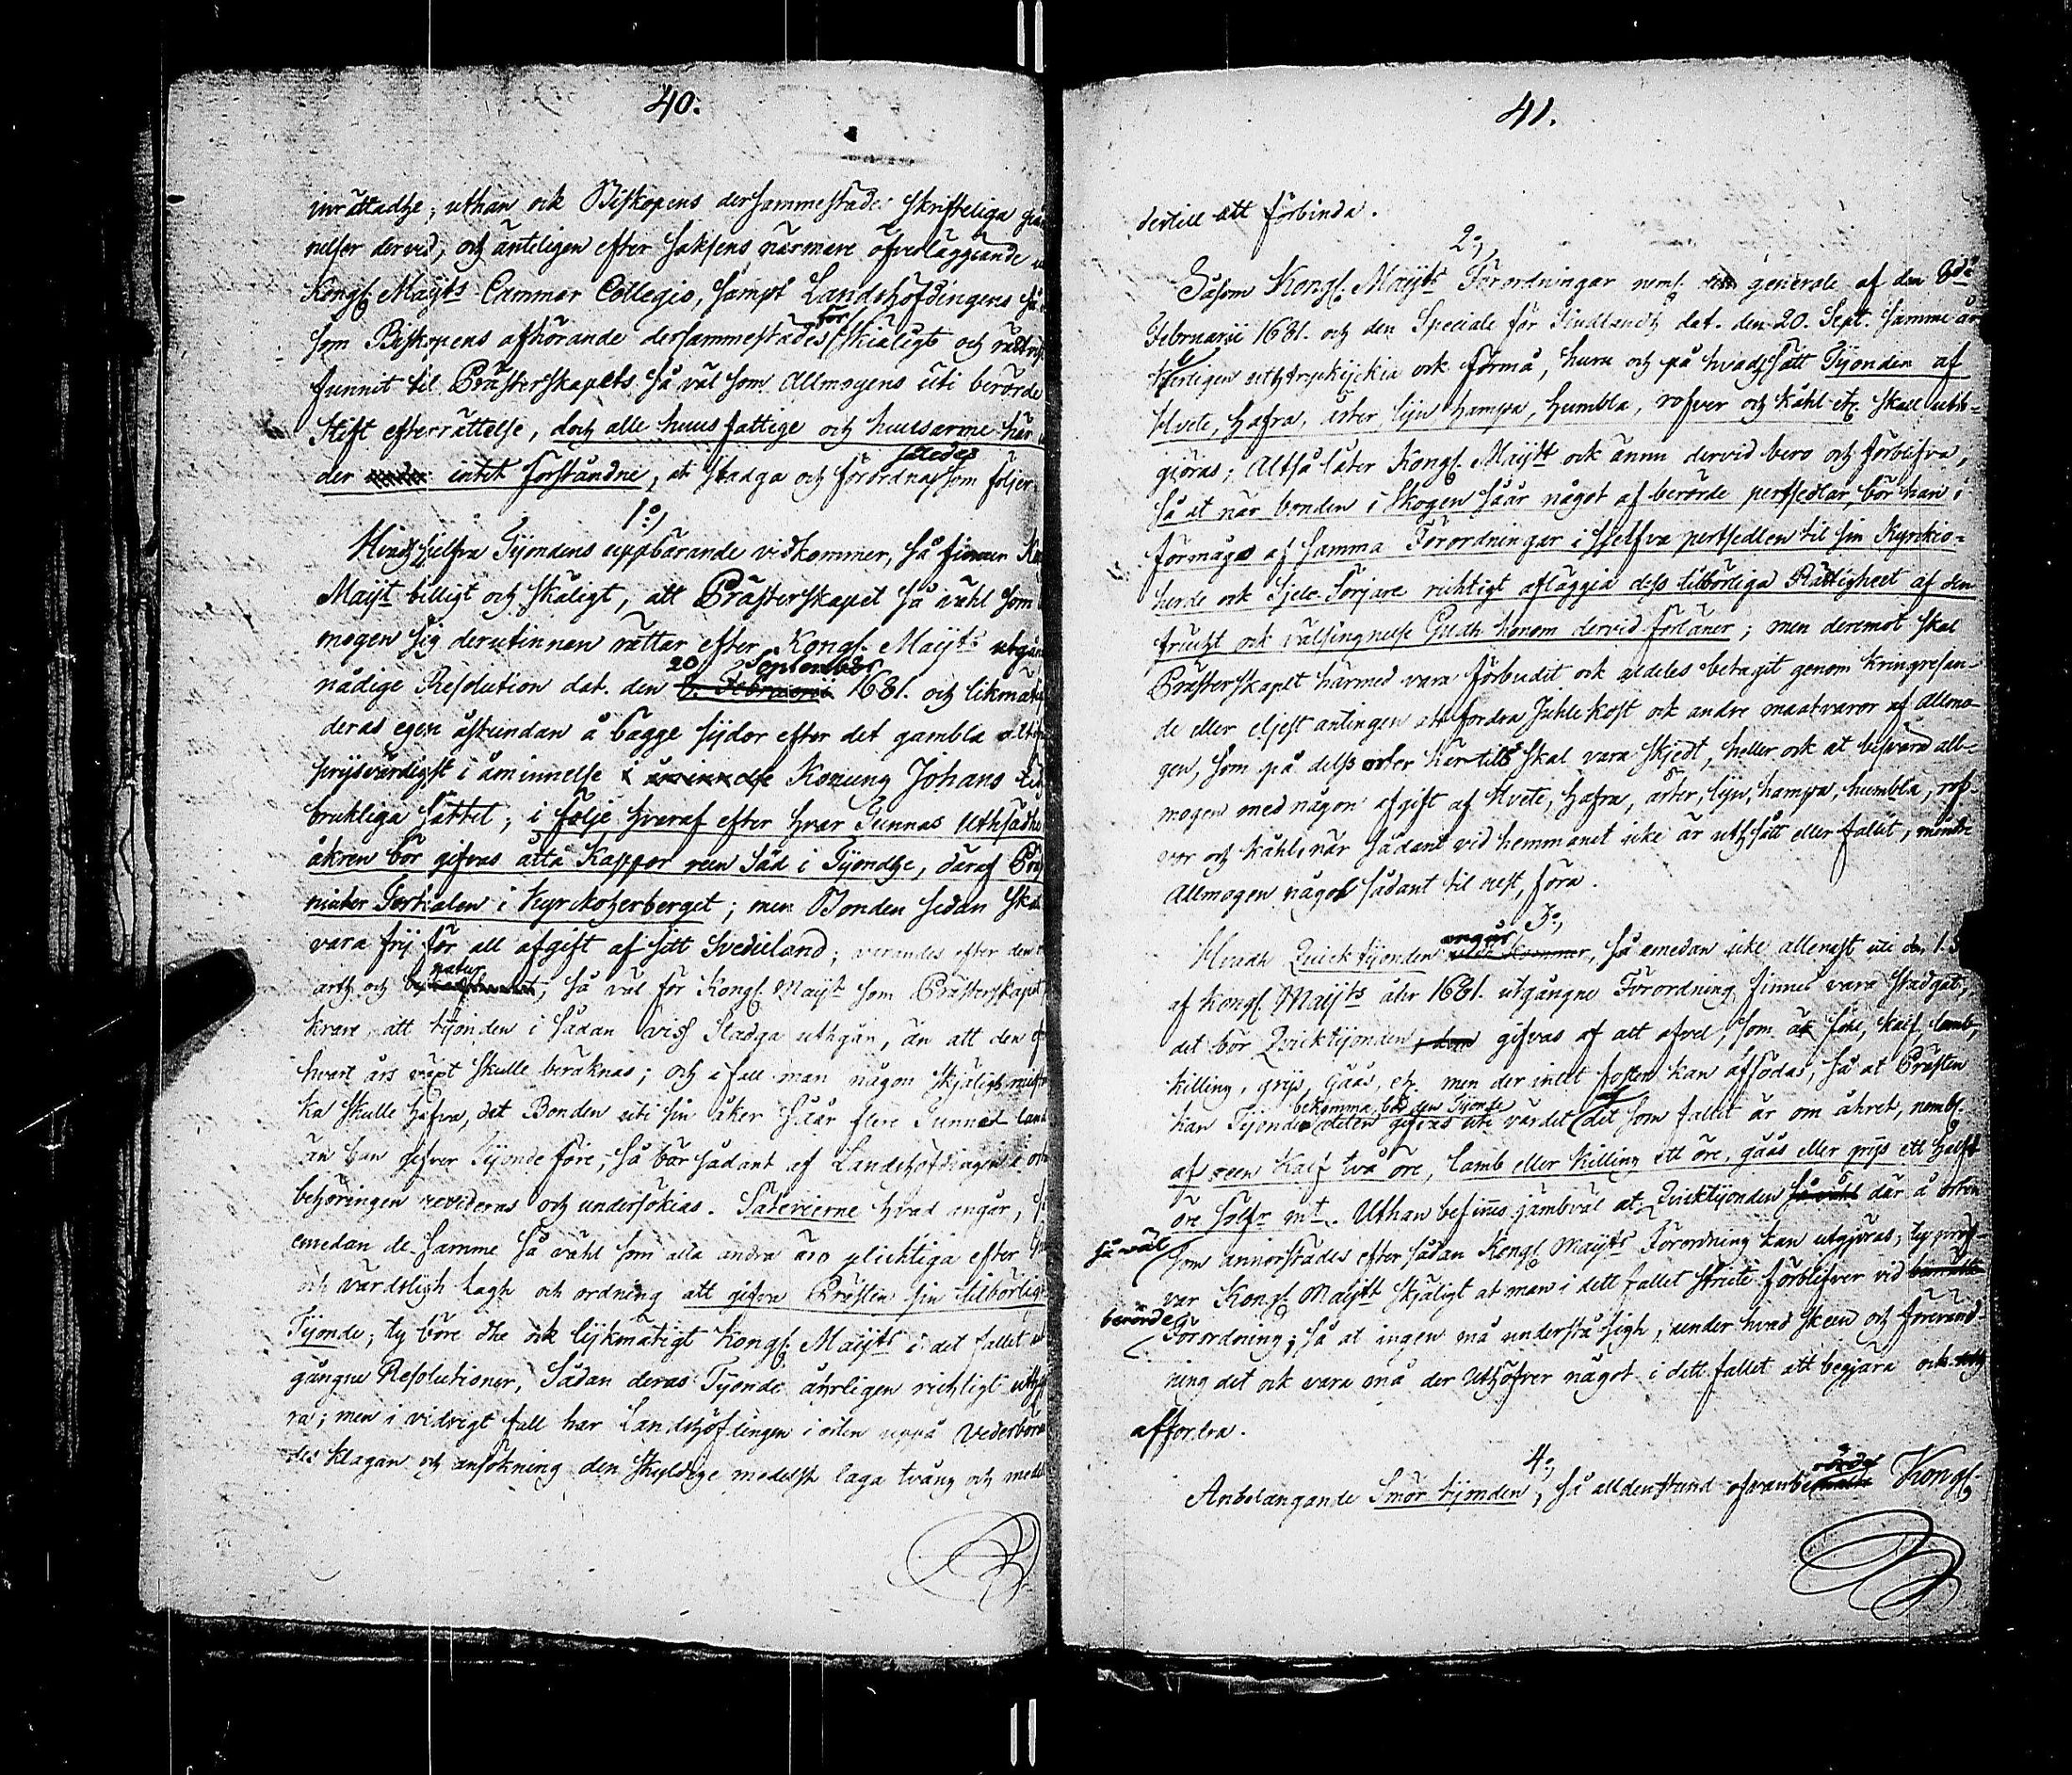 40.
inrättadhe, uthan ock Biskopens dersammestädes skrifteliga
nelser dervid, och änteligen efter saksens närmere öfverläggiande
Kongl. Maijts Cammar Collegio, sampt Landshöfdingens så
som Biskopens afhörande dersammestädes för skiäligt och
funnit til Prästerskapets så väl som Allmogens uti berörde
Stift efterrättelse, doch alle huusfattige och huusarme här
der intet förståndne, at stadga och förordna således som följer
1:o
Hvadh sjelfva Tijondens uppbärande vidkommer, så finner
Maijt billigt och skäligt, att Prästerskapet så vähl som
mogen sig derutinnan rättar efter Kongl. Maijts
20 September
nådige Resolution dat. den 8. Februarii 1681. och likmätig
deras egen åstundan å bägge sijdor efter det gambla
prijsvärdigst i åminnelse i åminnelse Konung Johans
brukliga sättet; i följe hvaraf efter hvar Tunnas Uthsädhe
åkren bör gifvas åtta Kappor reen Säd i Tijondhe, däraf
niuter Tertialen i Kyrckoherberget; men Bonden sedan
vara frij för all afgift af sitt Svedieland; varandes efter den
natur
arth och, så väl för Kongl. Maijt som Prästerskapet
krare, att tijonden i sådan viss Stadga uthgår, än att den
hvart års växt skulle beräknas; och ifall man någon skjälig
ka skulle hafva, det Bonden uti sin åker såår flere Tunnes land
än han gifver Tijonde före, så bör sådant af Landshöfdingen i
behöringen revideras och undersökias. Säterierne hvad angår,
emedan de samme så vähl som alla andra äro plichtiga efter
och värdsligh lagh och ordning att gifva Prästen sin tilbörlige
Tijonde; ty böre the ock lijkmätigt Kongl. Maijts i det fallet
gångne Resolutioner, Sådan deras Tijonde åhrligen richtigt
ra; men i vidrigt fall har Landshöfdingen i orten uppå Vederböran
des klagan och ansökning den skyldige medelst laga tvång och
41.
dertill att förbinda.
2:o
Såsom Kongl. Maijts Förordningar neml. generale af den 8de
Februarii 1681. och den Speciale för dat. den 20. Sept. samme år
tijdeligen uthtryckijckia ock förmå, huru och på hvadhsätt Tijonden af
Hvete, hafra, ärter, lijn, hampa, humbla, rofver och kåhl etc. skall uth-
giöras; Altså låter Kongl. Maijtt ock ännu dervid bero och förblifva,
så at när bonden i Skogen såår något af berörde pertsedlar, bör han i
förmågo af samma Förordningar i sjelfva pertsedlen til sin Kyrckio-
herde ock Själe-Sörjare richtigt afläggia dess tilbörliga Rättigheet af den
frucht ock välsingnelse Gudh honom dervid förläner; men deremot skal
Prästerskapet härmed vara förbudit ock aldeles betagit genom kringresan-
de eller eljest antingen att fordra Juhlekost ock andre maatvaror af Allmo-
gen, som på dels orter här tils skal vara skjedt, heller ock at besvära all-
mogen med någon afgift af Hvete, hafra, ärter, lijn, hampa, humbla, rof-
vor och kåhl, när sådant vid hemmanet icke är uthsått eller fallit, mindre
Allmogen något sådant til rest, föra.
3:o
angår
Hvadh Quicktijonden, så emedan icke allenast uti den
af Kongl. Maijts åhr 1681. utgångne Förordning finnes vara stadgat,
det bör Quicktijonden gifvas af alt afvel, som är föhl, kalf, lamb,
killing, grijs, Gåås, etc. men der intet fosten kan affördas, så at Prästen
bekomma
kan Tijonden gifvas uti värdet af det som fallit är om åhret, nembl.
af reen Kalf två öre, lamb eller killing ett öre, gåås eller grijs ett halft
öre Solfr mt. Uthan befinnes jämbväl at Quicktijonden så vähl där å orten
så väl
som annorstädes efter sådan Kongl. Maijts Förordning kan utgjöras, ty pröf-
var Kongl. Maijtt skjäligt at man i dett fallet stricte förblifver vid
berörde
Förordning; så at ingen må understå sigh, under hvad skeen och förevänd-
ning det ock vara må der Uthöfver något i dett fallet att begjära ock
affordra.
4:o
rörde
Anbelangande Smör tijonden, så alldenstund ofvanbe Kongl.